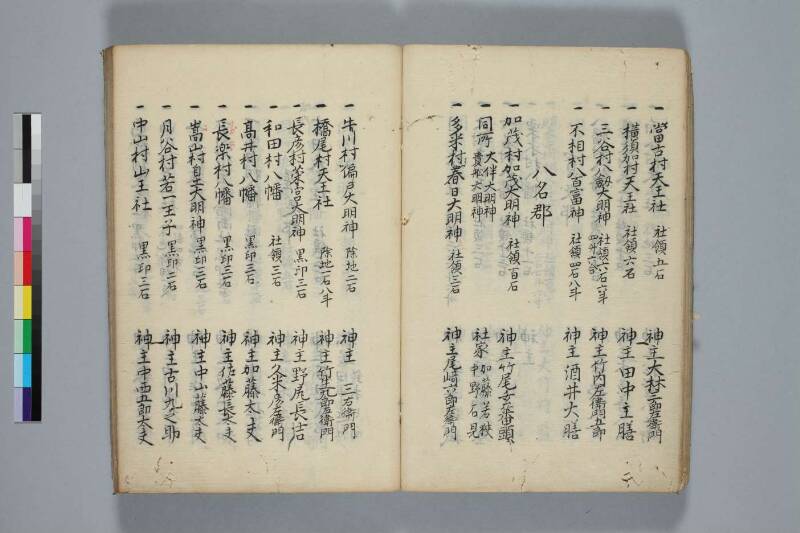 一 當古村天王社 社領五石 神主大林二郎左衛門
一 横須加村天王社 社領六石 神主田中主膳
一 三谷村八劔大明神 社領六石六斗 神主竹内左衛門五郎
一 不相村八百富神 社領四石八斗 神主酒井大膳
八名郡
一 加茂村加茂大明神 社領百石 神主竹尾
一 同所 大伴大明神 貴舩大明神 社家 加藤若狭 中野石見
一 多米村春日大明神 社領三石 神主尾崎
一 牛川村偏戸大明神 除地二石 神主 三右衛門
一 橋尾村天王社 除地一石八斗 神主竹生
一 長彦村菜宮大明神 黒印三石 神主野尻長吉
一 和田村八幡 社領三石 神主久米彦左衛門
一 髙井村八幡 黒印三石 神主加藤太夫
一 長楽村八幡 黒印三石 神主佐藤長太夫
一 嵩山村自主大明神 黒印三石 神主中山藤太夫
一 月谷村若一王子 黒印二石 神主古川九之助
一 中山村山王社 黒印三石 神主中西五郎太夫